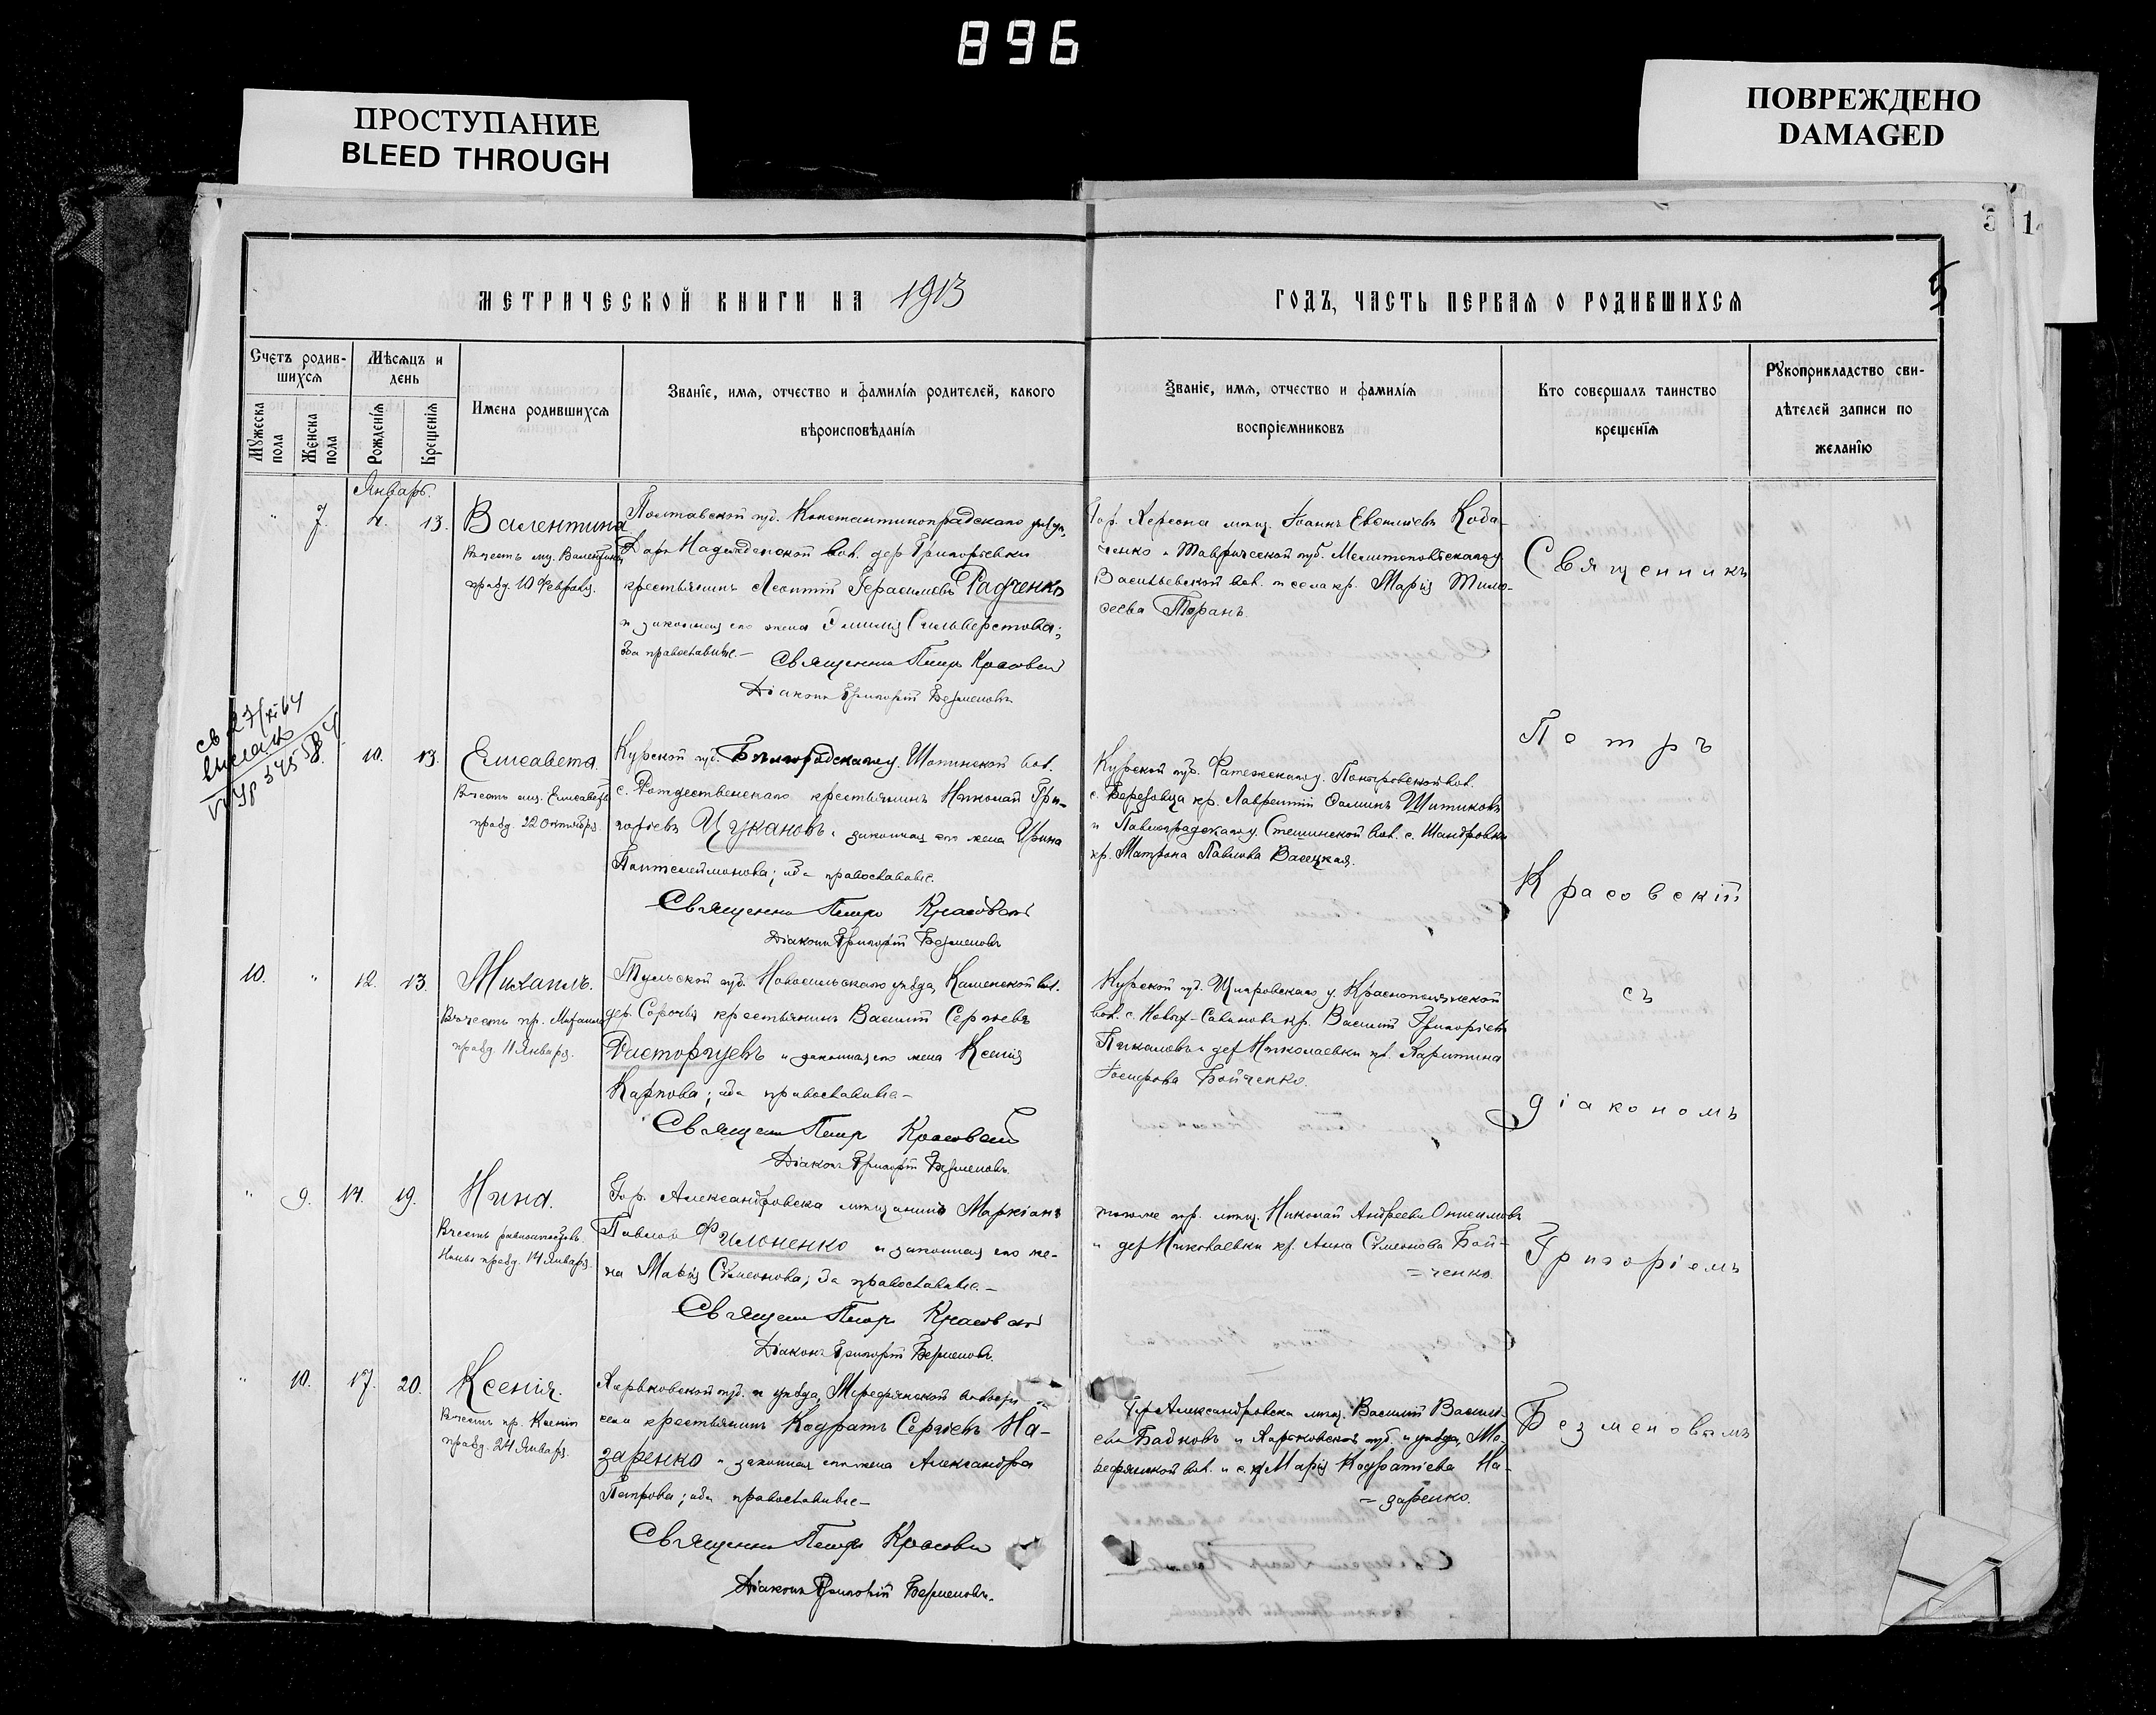 896
ПРОСТУПАНИЕ
BLEED THROUGH
ПОВРЕЖДЕНО
DAMAGED
5 1
МЕТРИЧЕСКОЙ КНИГИ НА 1913
ГОДЪ, ЧАСТЬ ПЕРВАЯ О РОДИВШИХСЯ
5
Счетъ родив-
шихся
Мѣсяцъ и
день
Мужеска
пола
Женска
пола
Рожденія
Крещенія
Имена родившихся
Званіе, имя, отчество и фамилія родителей, какого
вѣроисповѣданія
Званіе, имя, отчество и фамилія
воспріемниковъ
Кто совершалъ таинство
крещенія
Рукоприкладство сви-
дѣтелей записи по
желанію
Январь.
" 7. 4. 13. Валентина
Въ честь муч. Валентины
празд. 10 Февраля.
Полтавской губ. Константиноградскаго уѣзда,
вол. дер. Григорьевки
крестьянинъ Леонтій Герасимовъ Радченко
и законная его жена Эмилія Сильверстова;
оба православные.—
Священникъ Петръ Красовскій
Діаконъ Григорій Безменовъ
Гор. Херсона мѣщ. Іоаннъ Кова-
ленко и Таврической губ. Мелитопольскаго у.
Васильевской вол. и села кр. Марія Тимо-
ѳеева Таранъ.
Св. 27/XI 64
10. 13. Елисавета.
Въ честь Елисаветы
празд. 22 Октября.
Курской губ. Бѣлгородскаго у. Шопинской вол.
с. Рождественскаго крестьянинъ Николай Гри-
горьевъ Цукановъ и законная его жена Ирина
Пантелеймонова; оба православные.
Священникъ Петръ Красовскій
Діаконъ Григорій Безменовъ
Курской губ. Фатежскаго у. вол.
с. Березовца кр. Лаврентій Ѳоминъ Шитиковъ
и Павлоградскаго у. вол. с. Шандровки
кр. Матрона Павлова
10. " 12. 13. Михаилъ.
Въ честь пр. Михаила
празд. 11 Января.
Тульской губ. Новосильскаго уѣзда, Каменской вол.
дер. Сорочьи крестьянинъ Василій Сергѣевъ
Расторгуевъ и законная его жена Ксенія
Карпова; оба православные—
Священникъ Петръ Красовскій
Діаконъ Григорій Безменовъ.
Курской губ. Щигровскаго у. Краснополянской
вол. с. кр. Василій Григорьевъ
Пикаловъ и дер. Николаевки кр. Харитина
Іосифова Бойченко.
" 9. 14. 19. Нина.
Въ честь равноапостол.
Нины празд. 14 Января.
Гор. Александровска мѣщанинъ Маркіанъ
Павловъ Филоненко и законная его же-
на Марія Сѵмеонова; оба православные.—
Священникъ Петръ Красовскій
Діаконъ Григорій Безменовъ.
того же гор. мѣщ. Николай Андреевъ Онисимовъ
и дер. Николаевки кр. Анна Сѵмеонова Бой-
=ченко.
" 10. 17. 20. Ксенія.
Въ честь пр. Ксеніи
празд. 24 Января.
Харьковской губ. и уѣзда, Мерефянской волости и
села крестьянинъ Кодратъ Сергѣевъ На-
заренко и законная его жена Александра
Петрова; оба православные—
Священникъ Петръ Красовскій
Діаконъ Григорій Безменовъ.
Гор. Александровска мѣщ. Василій Василь-
евъ Бадковъ и Харьковской губ. и уѣзда, Ме-
рефянской вол. и с. кр. Марія Кодратіева На-
=заренко.
Священникъ
Петръ
Красовскій
съ
діакономъ
Григоріемъ
Безменовымъ